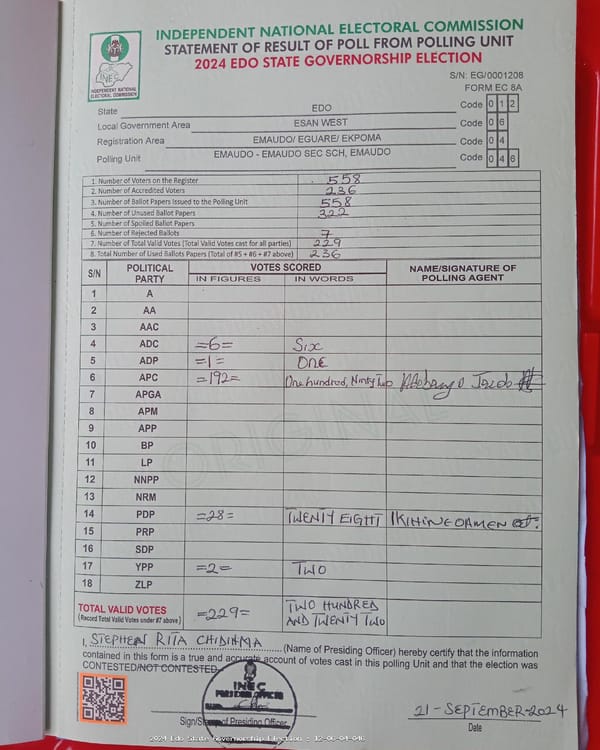 INDEPENDENT NATIONAL ELECTORAL COMMISSION
STATEMENT OF RESULT OF POLL FROM POLLING UNIT
2024 EDO STATE GOVERNORSHIP ELECTION
INEC
INDEPENDENT NATIONAL
ELECTORAL COMMISSION
S/N: EG/0001208
FORM EC 8A
State EDO Code 0 1 2
Local Government Area ESAN WEST Code 0 6
Registration Area EMAUDO/ EGUARE/ EKPOMA Code 0 4
Polling Unit EMAUDO - EMAUDO SEC SCH, EMAUDO Code 0 4 6
1. Number of Voters on the Register 558
2. Number of Accredited Voters 236
3. Number of Ballot Papers Issued to the Polling Unit 558
4. Number of Unused Ballot Papers 322
5. Number of Spoiled Ballot Papers
6. Number of Rejected Ballots 7
7. Number of Total Valid Votes (Total Valid Votes cast for all parties) 229
8. Total Number of Used Ballots Papers (Total of #5 + #6 + #7 above) 236
S/N POLITICAL PARTY VOTES SCORED NAME/SIGNATURE OF POLLING AGENT
IN FIGURES IN WORDS
1 A
2 AA
3 AAC
4 ADC =6= Six
5 ADP =1= ONE
6 APC =192= One hundred, Ninty Two Jacob
7 APGA
8 APM
9 APP
10 BP
11 LP
12 NNPP
13 NRM
14 PDP =28= TWENTY EIGHT IKHINEOAMEN
15 PRP
16 SDP
17 YPP =2= TWO
18 ZLP
ORIGINAL
TOTAL VALID VOTES
(Record Total Valid Votes under #7 above) =229= TWO HUNDRED
AND TWENTY TWO
I, STEPHEN RITA CHIDINMA (Name of Presiding Officer) hereby certify that the information
contained in this form is a true and accurate account of votes cast in this polling Unit and that the election was
CONTESTED/NOT CONTESTED
INEC
PRESIDING OFFICER
21-SEPTEMBER-2024
Sign/Stamp of Presiding Officer Date
2024 Edo State Governorship Election : 12-06-04-046